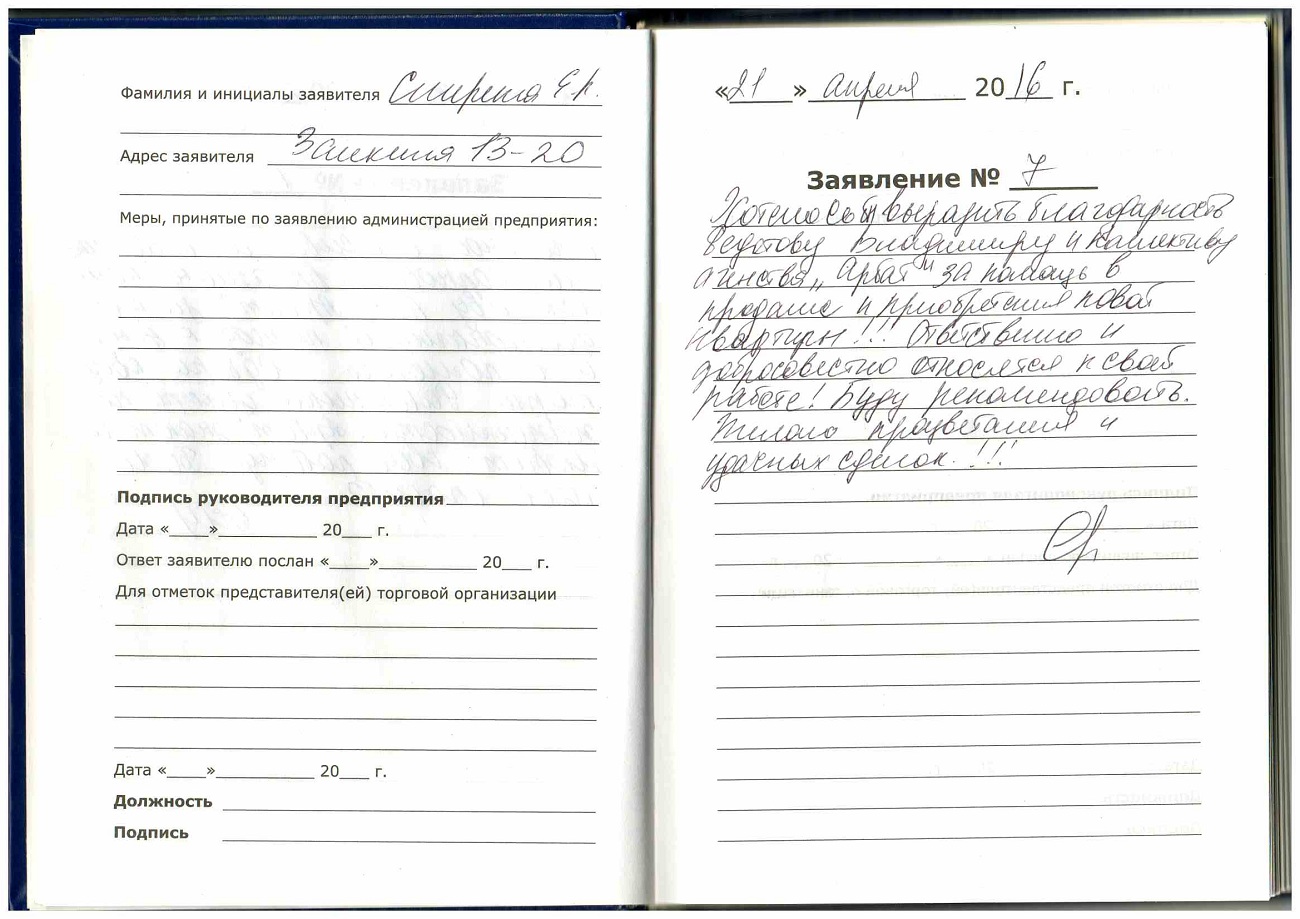 Фамилия и инициалы заявителя
Адрес заявителя 13-20
Меры, принятые по заявлению администрацией предприятия:
Подпись руководителя предприятия
Дата «____»____________ 20___ г.
Ответ заявителю послан «____»____________ 20___ г.
Для отметок представителя(ей) торговой организации
Дата «____»____________ 20___ г.
Должность
Подпись
«21» апреля 2016 г.
Заявление № 7
Хотелось бы выразить благодарность
Владимиру и коллективу
"Арбат" за помощь в
продаже и приобретения новой
квартиры!!! Ответственно и
добросовестно относятся к своей
работе! Буду рекомендовать.
процветания и
удачных сделок.!!!